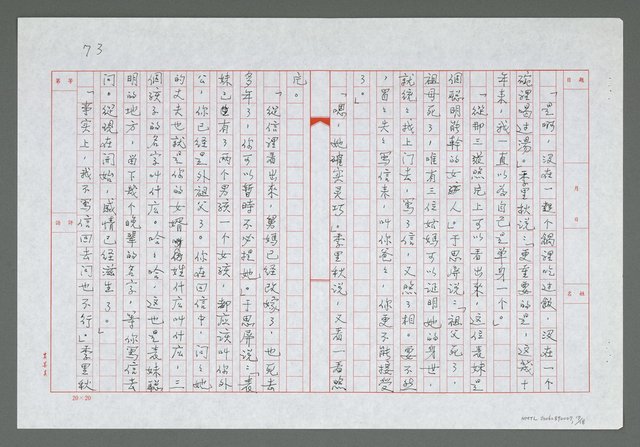 73
「是啊，沒在一起個鍋裡吃過飯，沒在一個
碗裡喝過湯。」季里秋說：「更重要的是，這幾十
年來，我一直以為自己是單身一個。」
「從那三張照片上可以看出來，這位表妹是
個聰明能幹的女強人。」于思屏說：「祖父死了，
祖母死了，唯有三位姑媽可以證明她的身世，
就統統找上門去，寫了信，又照了相。要不然
，冒冒失失寫信來，叫你爸爸，你更不能接受
了。」
「嗯，她確實靈巧。」季里秋說，又看一看照
片。
「從信裡看出來，舅媽已經改嫁了，也死去
多年了，你可以暫時不必提她。」于思屏說：「表
妹已有了兩個男孩一個女孩，都應該叫你外
公，你已經是外祖父了。你在回信中，問問她
的丈夫也就是你的女婿姓什麼叫什麼，三
個孩子的名字叫什麼。哈哈哈，這也是表妹聰
明的地方，留下幾個晚輩的名字，等你寫信去
問。從現在開始，感情已經滋生了。」
「事實上，我不寫信回去問也不行。」季里秋
題目
月
日
姓名
等第
評語
20×20